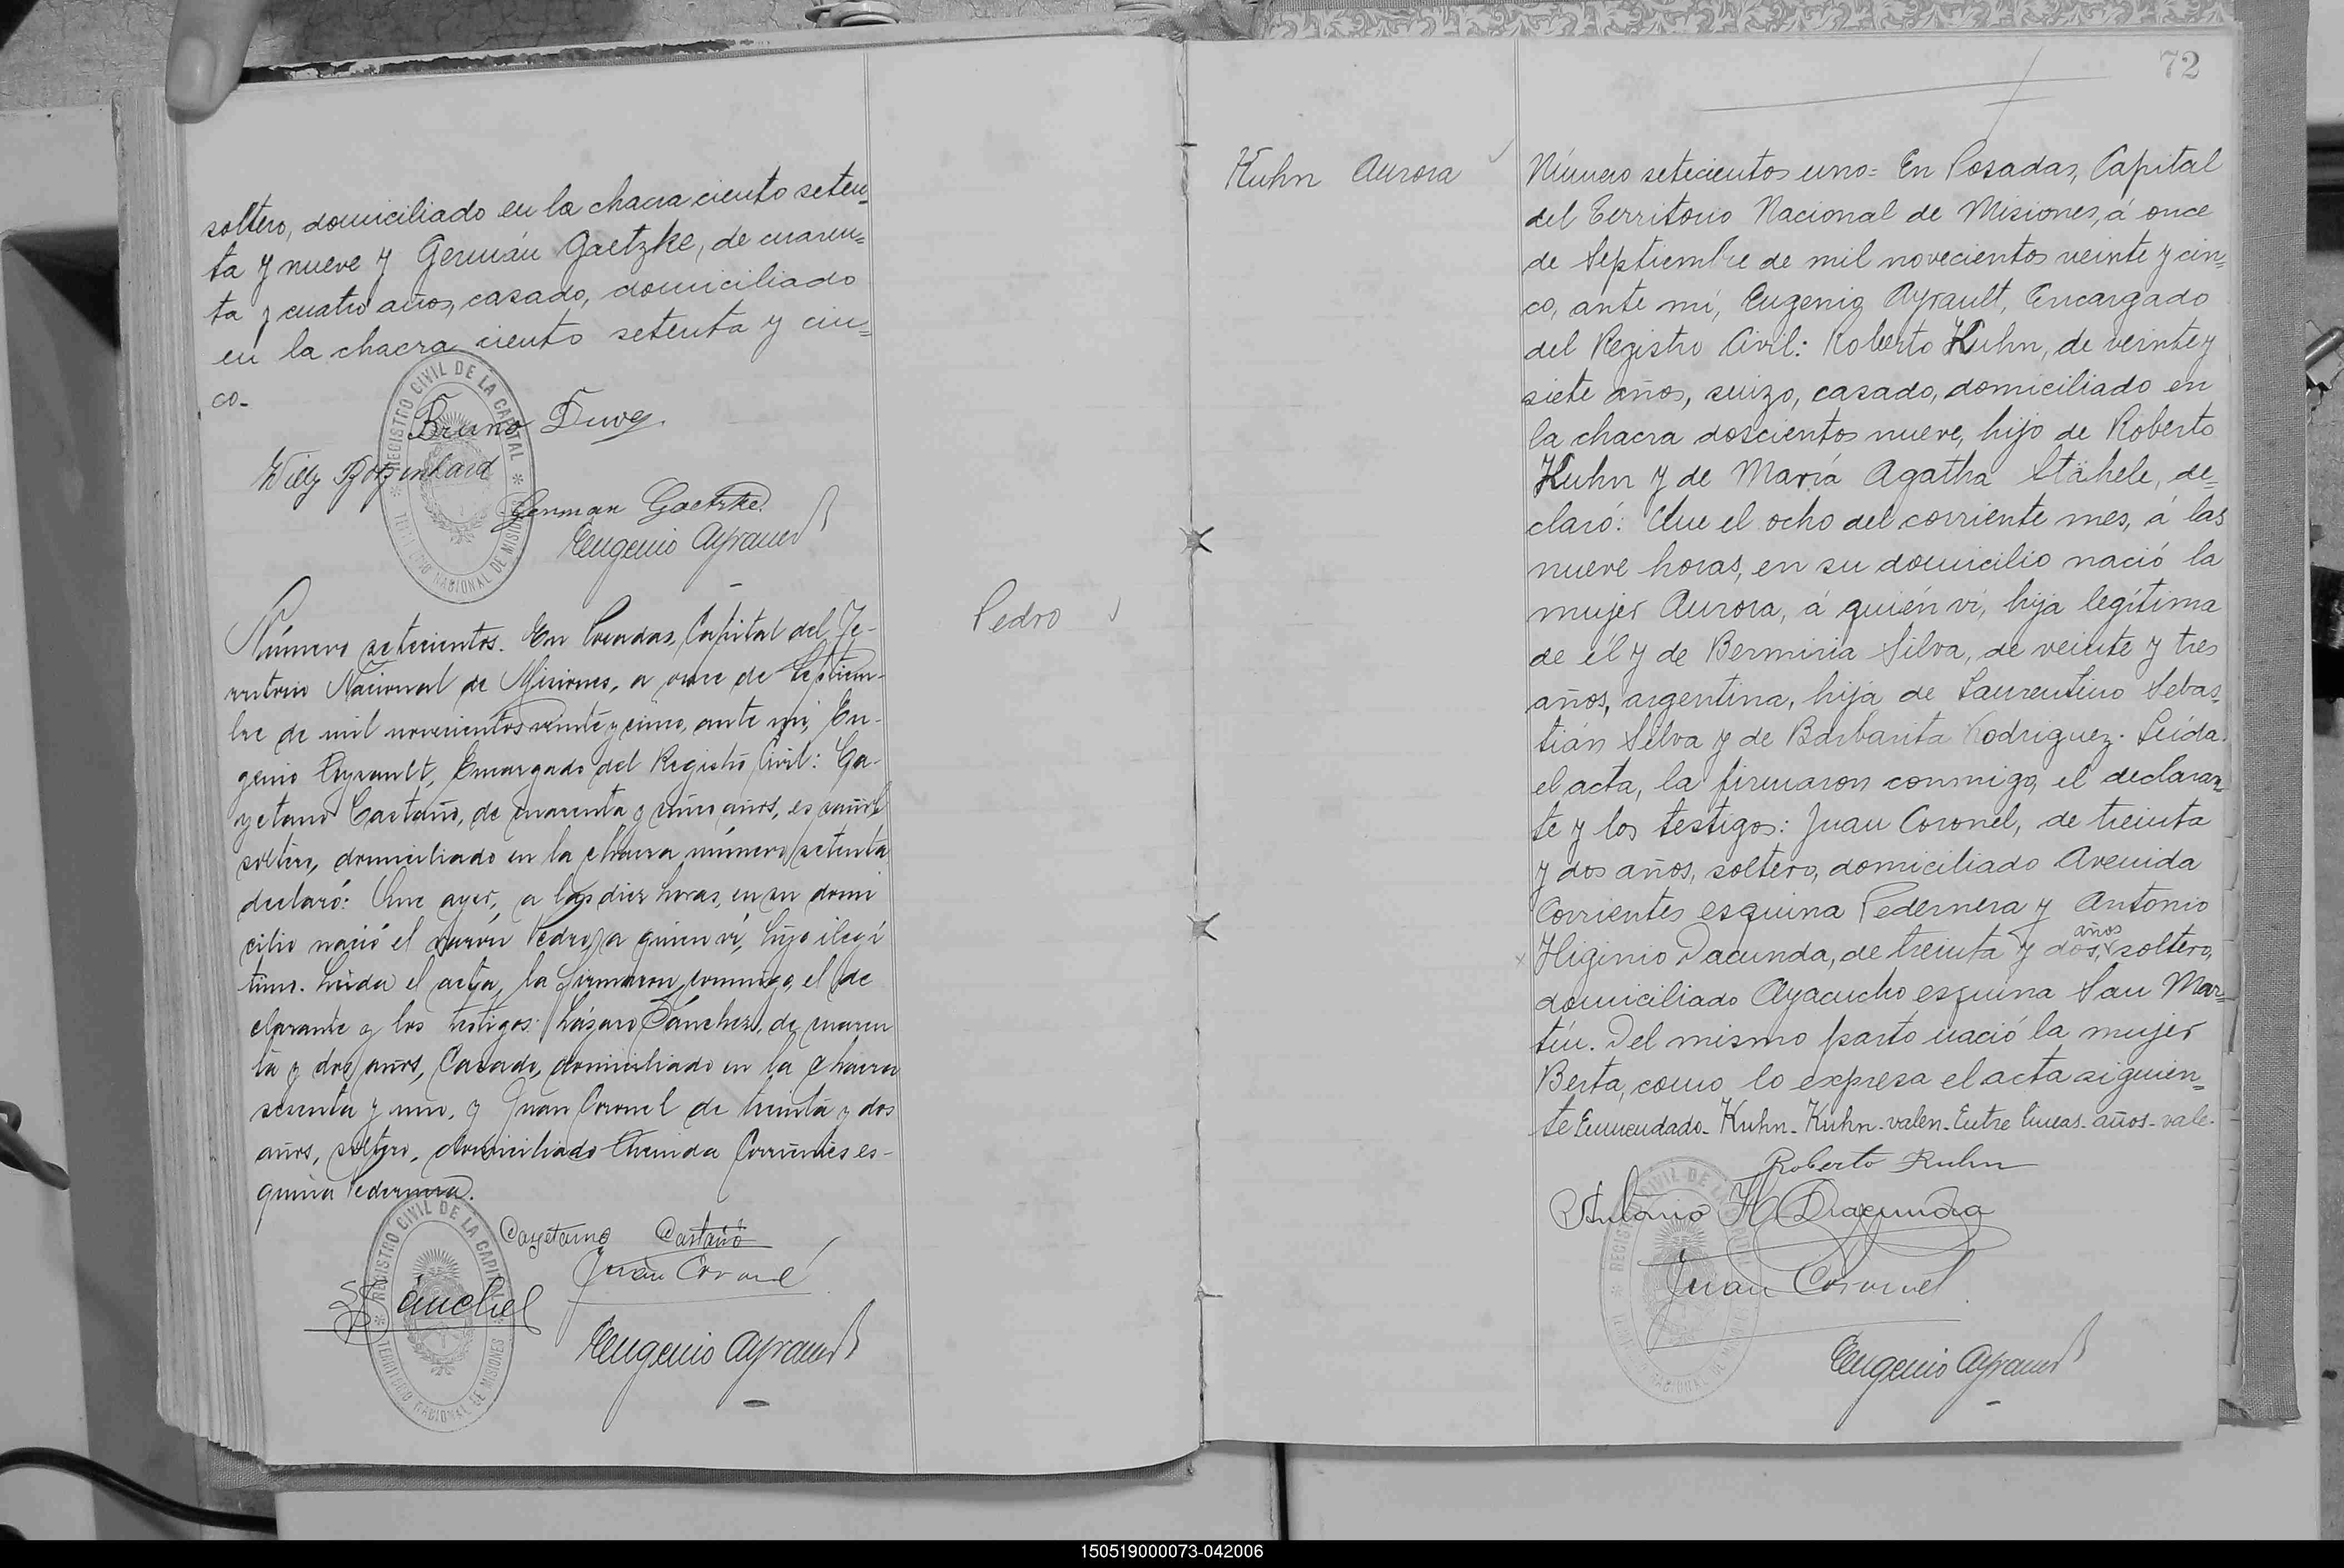 soltero, domiciliado en la chacra ciento seten=
ta y nueve y Germán Gaetzke, de cuaren=
ta y cuatro años, casado, domiciliado
en la chacra ciento setenta y cin=
co-
REGISTRO CIVIL DE LA CAPITAL
TERRITORIO NACIONAL DE MISIONES
Bruno
Willy
German Gaetzke
Eugenio Ayrault
Número setecientos. En Posadas, Capital del Te-
rritorio Nacional de Misiones, a once de Septiem-
bre de mil novecientos veinte y cinco, ante mi, Eu-
genio Ayrault, Encargado del Registro Civil: Ca-
yetano Castaño, de cuarenta y cinco años, español
soltero, domiciliado en la chacra número setenta
declaró: Que ayer, a las diez horas, en su domi
cilio nació el varón Pedro, a quien ví, hijo ilegi
timo. Leida el acta, la firmaron conmigo, el de
clarante y los testigos: Lázaro Sánchez, de cuaren
ta y dos años, Casado, domiciliado en la chacra
sesenta y uno, y Juan Coronel de treinta y dos
años, soltero, domiciliado Avenida Corrientes es-
quina Pedernera.
Pedro
REGISTRO CIVIL DE LA CAPITAL
TERRITORIO NACIONAL DE MISIONES
Cayetano Castaño
Juan Coronel
Eugenio Ayrault
72
Kuhn Aurora
Número setecientos uno= En Posadas, Capital
del Territorio Nacional de Misiones, á once
de Septiembre de mil novecientos veinte y cin=
co, ante mí, Eugenio Ayrault, Encargado
del Registro Civil: Roberto Kuhn, de veinte y
siete años, suizo, casado, domiciliado en
la chacra doscientos nueve, hijo de Roberto
Kuhn y de María Agatha Stähele, de=
claró: Que el ocho del corriente mes, á las
nueve horas, en su domicilio nació la
mujer Aurora, á quién ví, hija legítima
de él y de Bermiria Silva, de veinte y tres
años, argentina, hija de Laurentino Sebas=
tián Silva y de Barbarita Rodriguez. Leída
el acta, la firmaron conmigo, el declaran=
te y los testigos: Juan Coronel, de treinta
y dos años, soltero, domiciliado Avenida
Corrientes esquina Pedernera y Antonio
Higinio Dacunda, de treinta y dos, años soltero,
domiciliado Ayacucho esquina San Mar=
tín. Del mismo parto nació la mujer
Berta, como lo expresa el acta siguien=
te Enmendado- Kuhn- Kuhn- valen- Entre lineas- años- vale-
Roberto Kuhn
Antonio H Dacunda
Juan Coronel
Eugenio Ayrault
150519000073-042006